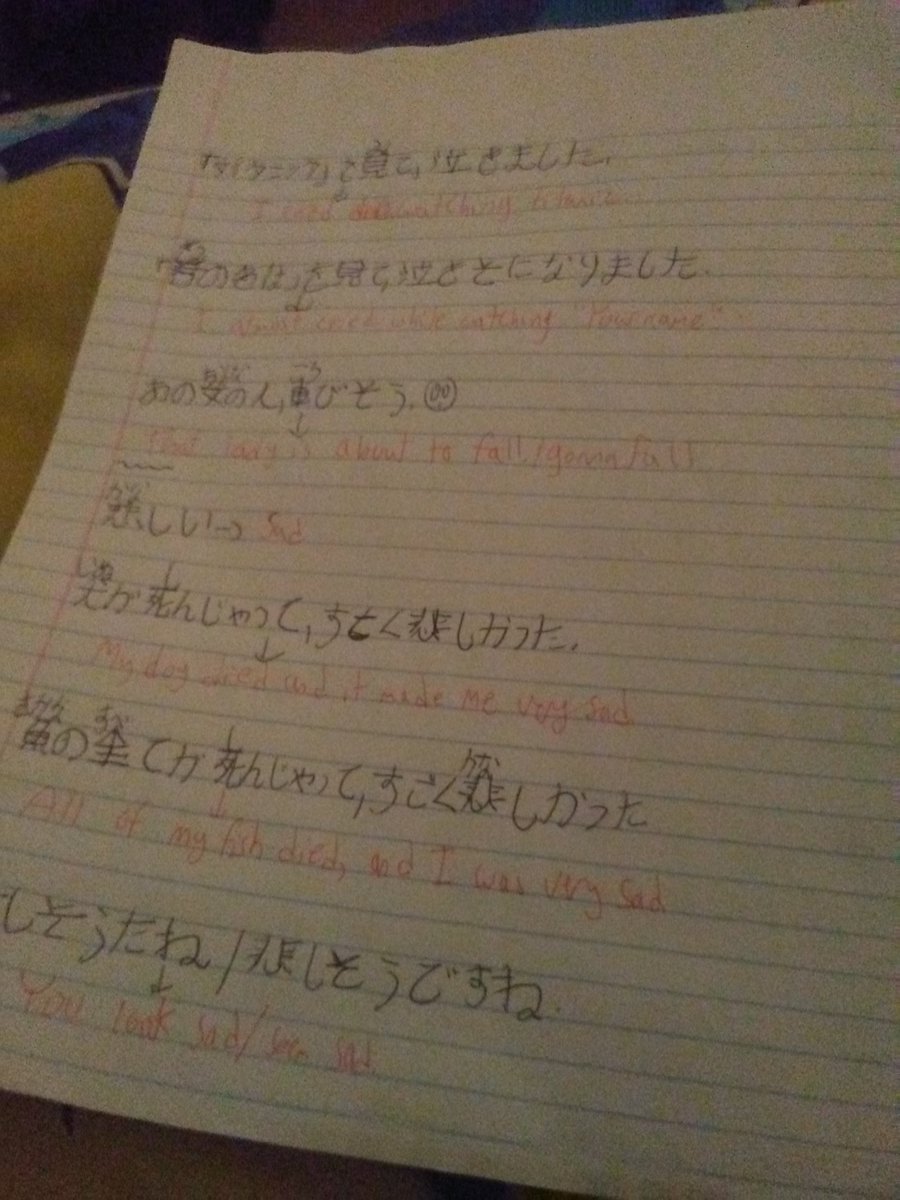 を見て,泣きました.
I cried watching titanic.
を見て,泣きそうになりました.
I almost cried while watching "Your name"
あの女の人,転びそう.
That lady is about to fall/gonna fall
悲しい→ Sad
犬が死んじゃって,すごく悲しかった.
My dog died and it made me very sad
の全てが死んじゃって,すごく悲しかった
All of my fish died, and I was very sad
しそうだね/悲しそうですね.
You look sad/seem sad